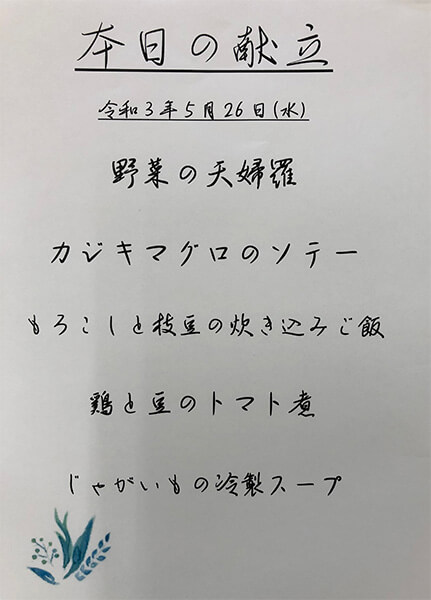 本日の献立
令和3年5月26日(水)
野菜の天婦羅
カジキマグロのソテー
もろこしと枝豆の炊き込みご飯
鶏と豆のトマト煮
じゃがいもの冷製スープ